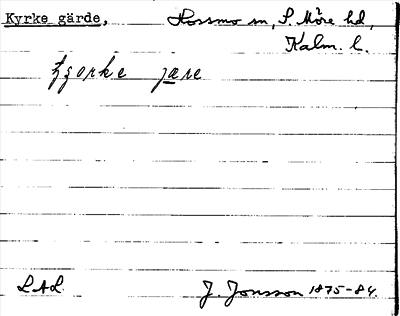 Kyrke gärde, Hossmo sn, S. Möre hd,
Kalm. l.
jære
LAL J. Jonsson 1875-84.